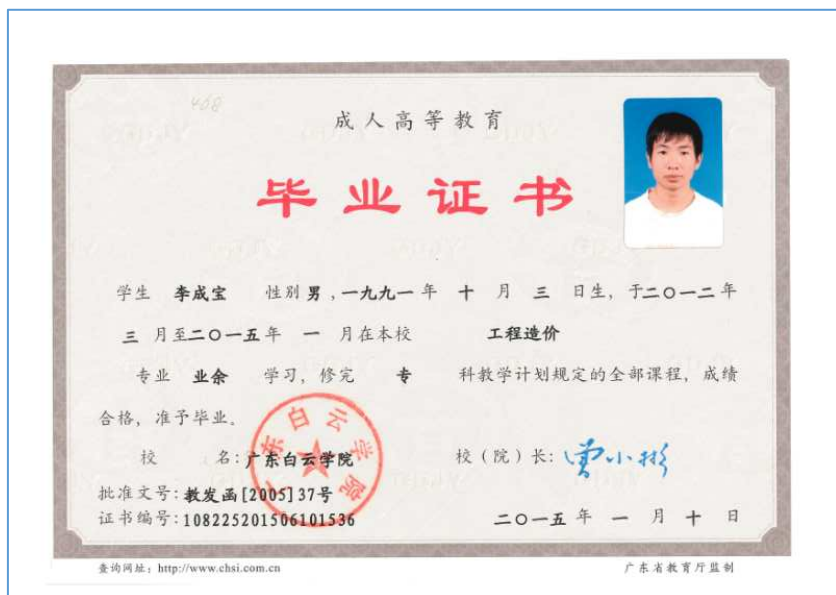 408
成人高等教育
毕业证书
学生 李成宝 性别 男，一九九一 年 十 月 三 日生，于二〇一二年
三 月至二〇一五年 一 月在本校 工程造价
专业 业余 学习，修完 专 科教学计划规定的全部课程，成绩
合格，准予毕业。
校 名：广东白云学院 校（院）长：曾小彬
东白云学院
批准文号：教发函[2005]37号
证书编号：108225201506101536 二〇一五 年 一 月 十 日
查询网址：http://www.chsi.com.cn 广东省教育厅监制